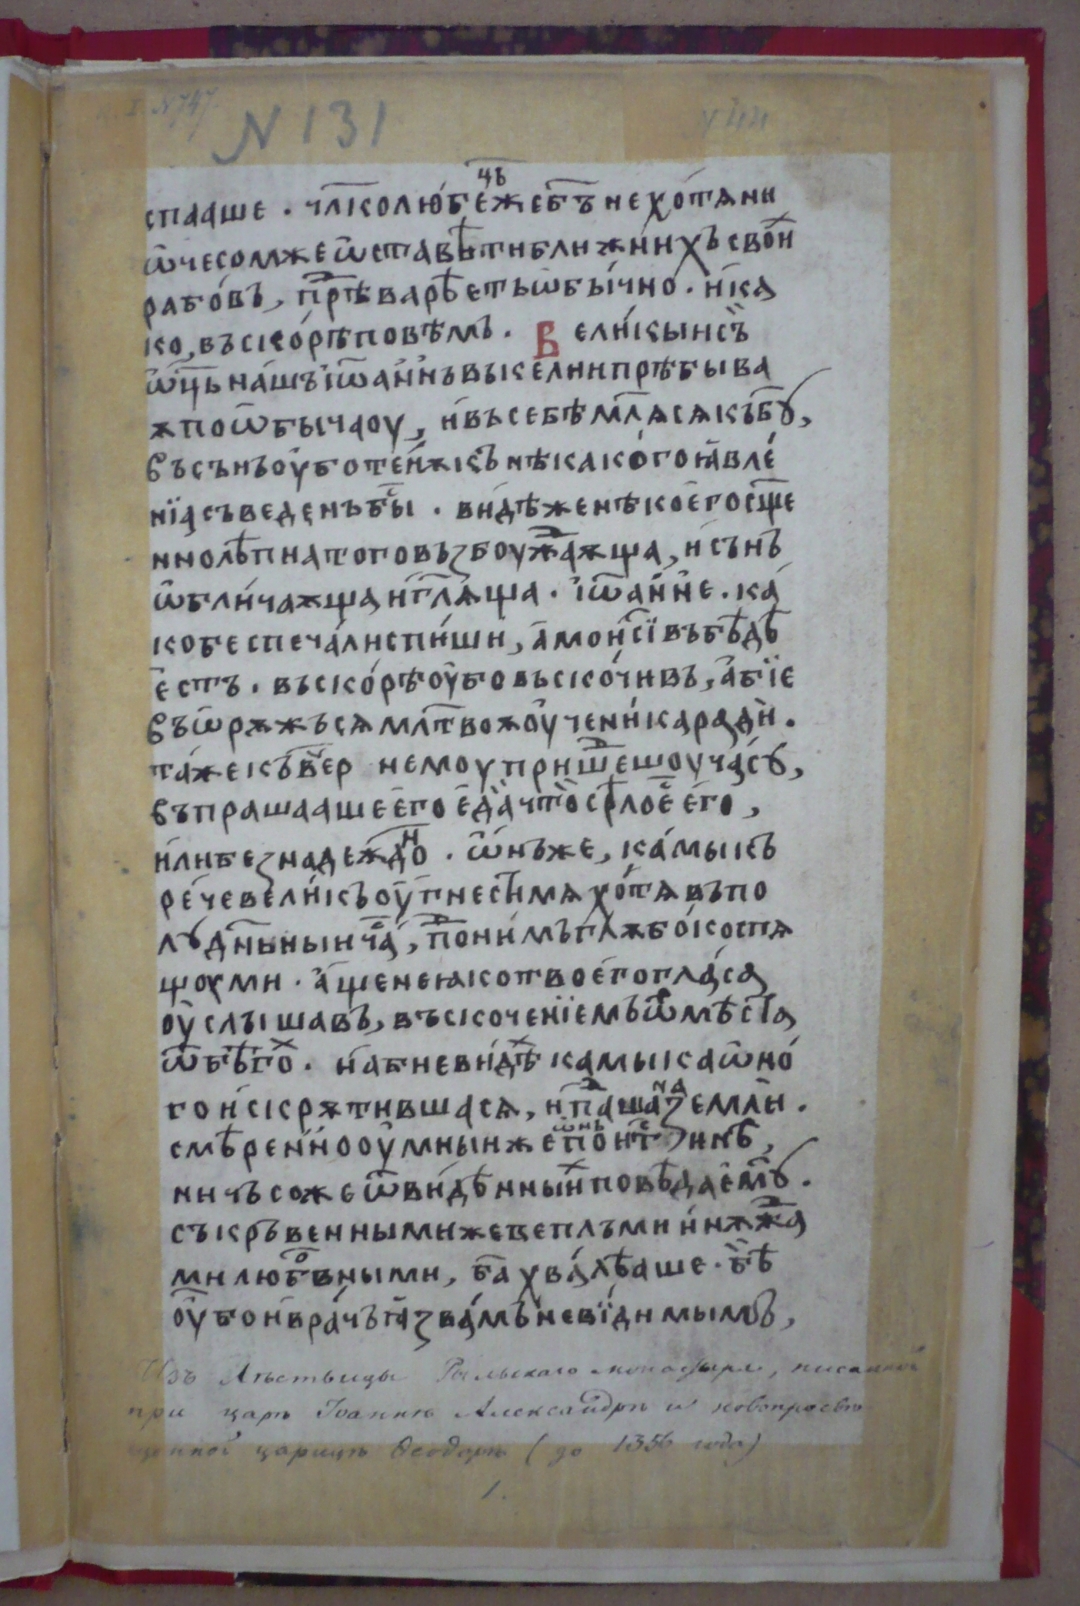 N 131
спааше · чл҃колю́бець же бъ҃ не хотѧ ни
ѡ҆ чесом же ѡ҆ставѣти ближни́хъ свои́х
рабо́въ, прⷣѣварѣеть ѡ҆бы́чно · и҆ ка
ко, въ ско́рѣ повѣмь · Вели́кыи съ
ѡ҆ц҃ь на́шъ і҆ѡ҆а́ннъ вь келии прѣбыва
ѫ по ѡ҆бычаоу, и҆ въ себѣ мл҃ѧсѧ къ бг҃ꙋ,
въ сънъ оу҆бо тенъкъ нѣкако́го ꙗ҆вле́
нїа съведенъ быⷭ҇ · ви́дѣ же нѣкоего сщ҃е
ннолѣпна того възбоужⷣаѫща, и҆ сънъ
ѡ҆бли́чаѫща и҆ гл҃ѧща · і҆ѡ҆а́нне · ка́
ко беспеча́лн спи́ши, а҆ мои҆сїи въ бѣдѣ
е҆стъ · въ ско́рѣ оу҆бо въско́чивъ, а҆бїе
въѡ҆рѫжъ сѧ мл҃твоѫ оу҆чени́ка ради ·
та́же къ ве́чер немоу пришеⷣшоу ча́сꙋ,
въпрашааше е҆го е҆да̀ что̀ срѣло е҆ⷭ҇ е҆го,
и҆ли безнадеждно · ѡ҆́нъ же, ка́мыкъ
ре́че вели́къ оу҆гнести мѧ хотѧ въ по
лꙋдн҃ьныи чаⷭ҇, поⷣ ни́мь глѫбо́ко спѧ
щоу ми · а҆ще не ꙗко твоего гла́са
оу҆слышавъ, въскоченїемъ ѿ мѣста
ѿбѣго́х · и҆ абие ви́дѣх камыка ѡ҆но́
го и҆скрѧтившасѧ, и҆ паⷣша на земли ·
смѣренноꙋ҆мныи же ѡ҆нь поистⷭ҇иннѣ,
ничъсоже ѿ ви́дѣнныих повѣда е҆мꙋ ·
съкръвенными же вепльми и҆ нѫжⷣа
ми любовными, ба҃ хва́лѣаше · бѣ
оу҆бо и҆ вра́чъ ꙗ҆звамъ неви́димымъ,
Изъ Лѣствицы Рыльскаго монастыря, писанной
при царѣ Іоаннѣ Александрѣ и новопросвѣ
щенной царицѣ Ѳеодорѣ (до 1356 года)
1.